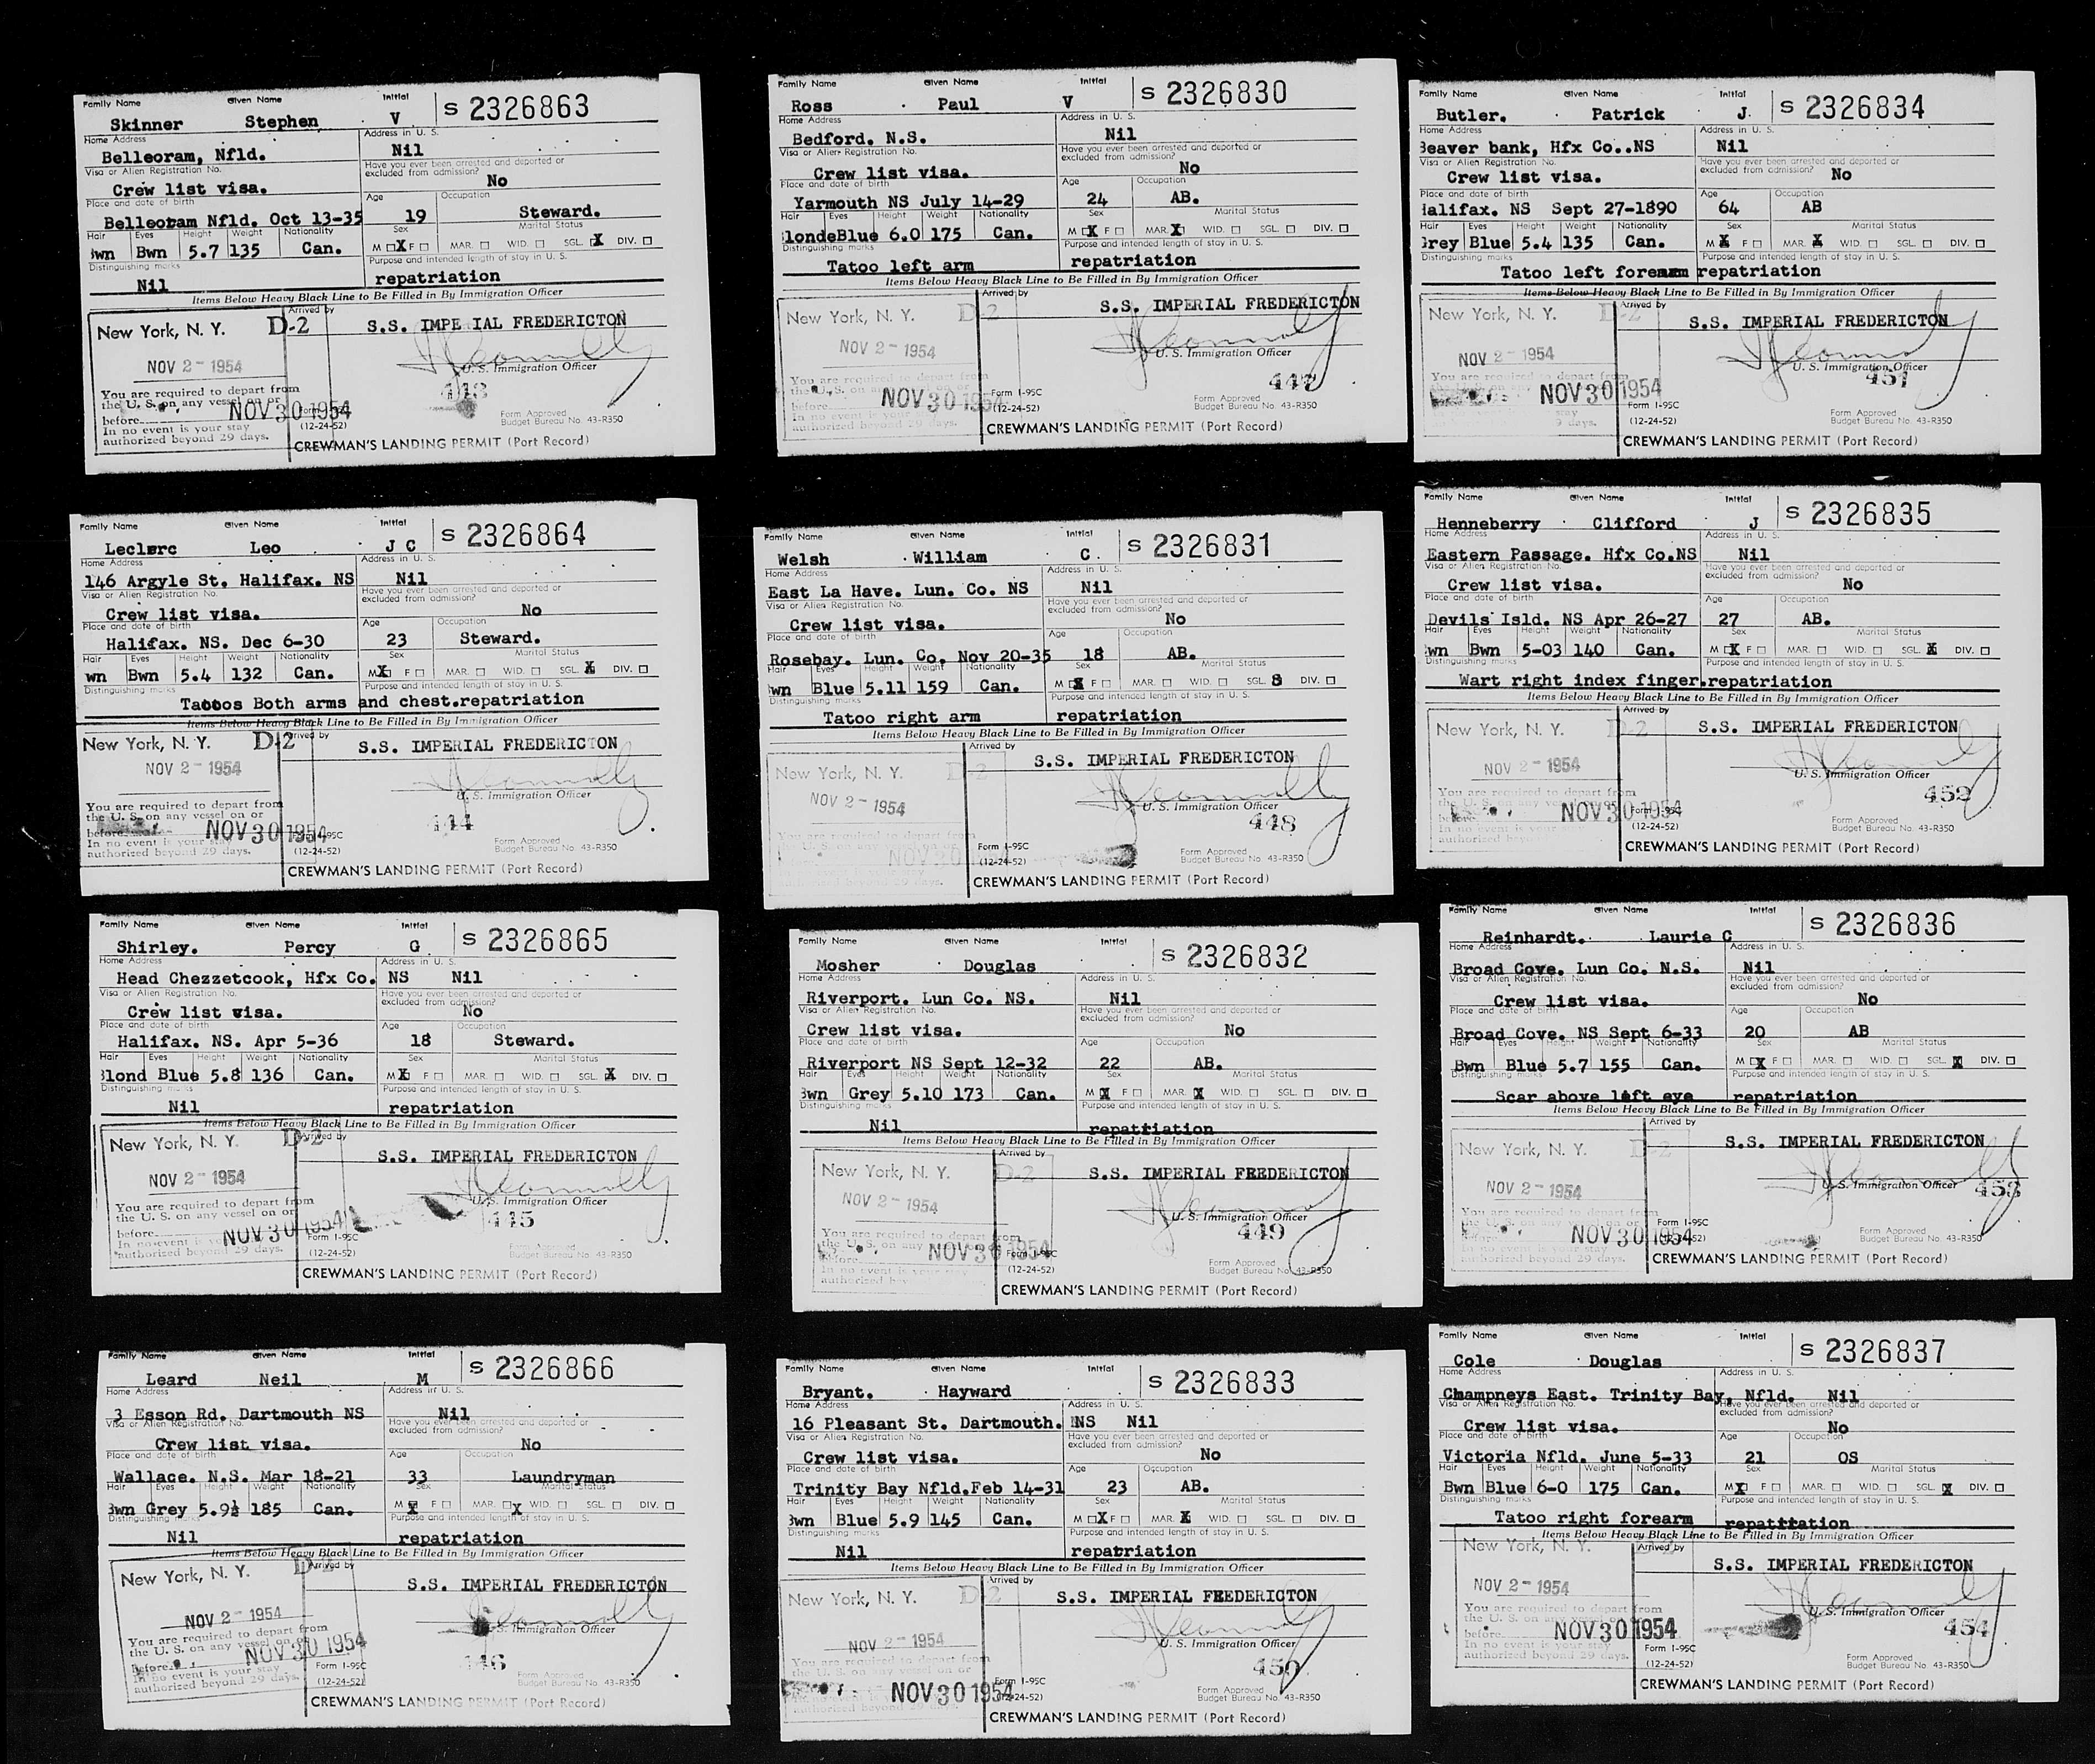 Family Name Given Name Initial S 2326863
Skinner Stephen V
Home Address Address in U. S.
Belleoram, Nfld. Nil
Visa or Alien Registration No. Have you ever been arrested and deported or excluded from admission?
Crew list visa. No
Place and date of birth Age Occupation
Belleoram Nfld. Oct 13-35 19 Steward.
Hair Eyes Height Weight Nationality Sex Marital Status
wn Bwn 5.7 135 Can. M X F MAR. WID. SGL. X DIV.
Distinguishing marks Purpose and intended length of stay in U. S.
Nil repatriation
Items Below Heavy Black Line to Be Filled in By Immigration Officer
New York, N. Y. D-2 Arrived by
S.S. IMPE IAL FREDERICTON
NOV 2 - 1954 U. S. Immigration Officer
You are required to depart from
the U. S. on any vessel on or
before NOV 30 1954
In no event is your stay
authorized beyond 29 days.
443
(12-24-52)
Form Approved
Budget Bureau No. 43-R350
CREWMAN'S LANDING PERMIT (Port Record)
Family Name Given Name Initial S 2326830
Ross Paul V
Home Address Address in U. S.
Bedford. N.S. Nil
Visa or Alien Registration No. Have you ever been arrested and deported or excluded from admission?
Crew list visa. No
Place and date of birth Age Occupation
Yarmouth NS July 14-29 24 AB.
Hair Eyes Height Weight Nationality Sex Marital Status
londeBlue 6.0 175 Can. M X F MAR. X WID. SGL. DIV.
Distinguishing marks Purpose and intended length of stay in U. S.
Tatoo left arm repatriation
Items Below Heavy Black Line to Be Filled in By Immigration Officer
New York, N. Y. D-2 Arrived by
S.S. IMPERIAL FREDERICTON
NOV 2 - 1954 U. S. Immigration Officer
You are required to depart from
the U. S. on any vessel on or
before NOV 30 1954
In no event is your stay
authorized beyond 29 days.
447
Form I-95C
(12-24-52)
Form Approved
Budget Bureau No. 43-R350
CREWMAN'S LANDING PERMIT (Port Record)
Family Name Given Name Initial S 2326834
Butler. Patrick J.
Home Address Address in U. S.
Beaver bank, Hfx Co..NS Nil
Visa or Alien Registration No. Have you ever been arrested and deported or excluded from admission?
Crew list visa. No
Place and date of birth Age Occupation
Halifax. NS Sept 27-1890 64 AB
Hair Eyes Height Weight Nationality Sex Marital Status
Grey Blue 5.4 135 Can. M X F MAR. X WID. SGL. DIV.
Distinguishing marks Purpose and intended length of stay in U. S.
Tatoo left forearm repatriation
Items Below Heavy Black Line to Be Filled in By Immigration Officer
New York, N. Y. Arrived by
S.S. IMPERIAL FREDERICTON
NOV 2 - 1954 U. S. Immigration Officer
You are required to depart from
NOV 30 1954
stay
9 days.
451
Form I-95C
(12-24-52)
Form Approved
Budget Bureau No. 43-R350
CREWMAN'S LANDING PERMIT (Port Record)
Family Name Given Name Initial S 2326864
Leclerc Leo J C
Home Address Address in U. S.
146 Argyle St. Halifax. NS Nil
Visa or Alien Registration No. Have you ever been arrested and deported or excluded from admission?
Crew list visa. No
Place and date of birth Age Occupation
Halifax. NS. Dec 6-30 23 Steward.
Hair Eyes Height Weight Nationality Sex Marital Status
wn Bwn 5.4 132 Can. M X F MAR. WID. SGL. X DIV.
Distinguishing marks Purpose and intended length of stay in U. S.
Tattoos Both arms and chest.repatriation
Items Below Heavy Black Line to Be Filled in By Immigration Officer
New York, N. Y. D-2 Arrived by
S.S. IMPERIAL FREDERICTON
NOV 2 - 1954 U. S. Immigration Officer
You are required to depart from
the U. S. on any vessel on or
before NOV 30 1954
In no event is your stay
authorized beyond 29 days.
444
(12-24-52)
Form Approved
Budget Bureau No. 43-R350
CREWMAN'S LANDING PERMIT (Port Record)
Family Name Given Name Initial S 2326831
Welsh William C.
Home Address Address in U. S.
East La Have. Lun. Co. NS Nil
Visa or Alien Registration No. Have you ever been arrested and deported or excluded from admission?
Crew list visa. No
Place and date of birth Age Occupation
Rosebay. Lun. Co. Nov 20-35 18 AB.
Hair Eyes Height Weight Nationality Sex Marital Status
wn Blue 5.11 159 Can. M X F MAR. WID. SGL. 8 DIV.
Distinguishing marks Purpose and intended length of stay in U. S.
Tatoo right arm repatriation
Items Below Heavy Black Line to Be Filled in By Immigration Officer
New York, N. Y. D-2 Arrived by
S.S. IMPERIAL FREDERICTON
NOV 2 - 1954 U. S. Immigration Officer
You are required to depart from
NOV 30
days.
448
Form I-95C
(12-24-52)
Form Approved
Budget Bureau No. 43-R350
CREWMAN'S LANDING PERMIT (Port Record)
Family Name Given Name Initial S 2326835
Henneberry Clifford J
Home Address Address in U. S.
Eastern Passage. Hfx Co.NS Nil
Visa or Alien Registration No. Have you ever been arrested and deported or excluded from admission?
Crew list visa. No
Place and date of birth Age Occupation
Devils Isld. NS Apr 26-27 27 AB.
Hair Eyes Height Weight Nationality Sex Marital Status
wn Bwn 5-03 140 Can. M X F MAR. WID. SGL. X DIV.
Distinguishing marks Purpose and intended length of stay in U. S.
Wart right index finger.repatriation
Items Below Heavy Black Line to Be Filled in By Immigration Officer
New York, N. Y. D-2 Arrived by
S.S. IMPERIAL FREDERICTON
NOV 2 - 1954 U. S. Immigration Officer
You are required to depart from
NOV 30 1954
In no event is your
authorized beyond
452
Form I-95C
(12-24-52)
Form Approved
Budget Bureau No. 43-R350
CREWMAN'S LANDING PERMIT (Port Record)
Family Name Given Name Initial S 2326865
Shirley. Percy G
Home Address Address in U. S.
Head Chezzetcook, Hfx Co. NS Nil
Visa or Alien Registration No. Have you ever been arrested and deported or excluded from admission?
Crew list visa. No
Place and date of birth Age Occupation
Halifax. NS. Apr 5-36 18 Steward.
Hair Eyes Height Weight Nationality Sex Marital Status
Blond Blue 5.8 136 Can. M X F MAR. WID. SGL. X DIV.
Distinguishing marks Purpose and intended length of stay in U. S.
Nil repatriation
Items Below Heavy Black Line to Be Filled in By Immigration Officer
New York, N. Y. D-2 Arrived by
S.S. IMPERIAL FREDERICTON
NOV 2 - 1954 U. S. Immigration Officer
You are required to depart from
the U. S. on any vessel on or
before NOV 30 1954
In no event is
authorized beyond 29 days.
445
Form I-95C
(12-24-52)
Form Approved
Budget Bureau No. 43-R350
CREWMAN'S LANDING PERMIT (Port Record)
Family Name Given Name Initial S 2326832
Mosher Douglas
Home Address Address in U. S.
Riverport. Lun Co. NS. Nil
Visa or Alien Registration No. Have you ever been arrested and deported or excluded from admission?
Crew list visa. No
Place and date of birth Age Occupation
Riverport NS Sept 12-32 22 AB.
Hair Eyes Height Weight Nationality Sex Marital Status
Bwn Grey 5.10 173 Can. M X F MAR. X WID. SGL. DIV.
Distinguishing marks Purpose and intended length of stay in U. S.
Nil repatriation
Items Below Heavy Black Line to Be Filled in By Immigration Officer
New York, N. Y. D-2 Arrived by
S.S. IMPERIAL FREDERICTON
NOV 2 - 1954 U. S. Immigration Officer
You are required to depart from
the U. S. on any
before NOV 30 1954
In no event is your stay
authorized
449
Form I-95C
(12-24-52)
Form Approved
Budget Bureau No. 43-R350
CREWMAN'S LANDING PERMIT (Port Record)
Family Name Given Name Initial S 2326836
Reinhardt. Laurie C
Home Address Address in U. S.
Broad Cove. Lun Co. N.S. Nil
Visa or Alien Registration No. Have you ever been arrested and deported or excluded from admission?
Crew list visa. No
Place and date of birth Age Occupation
Broad Cove. NS Sept 6-33 20 AB
Hair Eyes Height Weight Nationality Sex Marital Status
Bwn Blue 5.7 155 Can. M X F MAR. WID. SGL. X DIV.
Distinguishing marks Purpose and intended length of stay in U. S.
Scar above left eye repatriation
Items Below Heavy Black Line to Be Filled in By Immigration Officer
New York, N. Y. D-2 Arrived by
S.S. IMPERIAL FREDERICTON
NOV 2 - 1954 U. S. Immigration Officer
You are required to depart from
before NOV 30 1954
In no event is your stay
authorized beyond 29 days.
453
Form I-95C
(12-24-52)
Form Approved
Budget Bureau No. 43-R350
CREWMAN'S LANDING PERMIT (Port Record)
Family Name Given Name Initial S 2326866
Leard Neil M
Home Address Address in U. S.
3 Esson Rd. Dartmouth NS Nil
Visa or Alien Registration No. Have you ever been arrested and deported or excluded from admission?
Crew list visa. No
Place and date of birth Age Occupation
Wallace. N.S. Mar 18-21 33 Laundryman
Hair Eyes Height Weight Nationality Sex Marital Status
Bwn Grey 5.9½ 185 Can. M X F MAR. X WID. SGL. DIV.
Distinguishing marks Purpose and intended length of stay in U. S.
Nil repatriation
Items Below Heavy Black Line to Be Filled in By Immigration Officer
New York, N. Y. D-2 Arrived by
S.S. IMPERIAL FREDERICTON
NOV 2 - 1954 U. S. Immigration Officer
You are required to depart from
the U. S. on any vessel on or
before NOV 30 1954
In no event is your stay
authorized beyond 29 days.
446
Form I-95C
(12-24-52)
Form Approved
Budget Bureau No. 43-R350
CREWMAN'S LANDING PERMIT (Port Record)
Family Name Given Name Initial S 2326833
Bryant. Hayward
Home Address Address in U. S.
16 Pleasant St. Dartmouth. NS Nil
Visa or Alien Registration No. Have you ever been arrested and deported or excluded from admission?
Crew list visa. No
Place and date of birth Age Occupation
Trinity Bay Nfld.Feb 14-31 23 AB.
Hair Eyes Height Weight Nationality Sex Marital Status
Bwn Blue 5.9 145 Can. M X F MAR. X WID. SGL. DIV.
Distinguishing marks Purpose and intended length of stay in U. S.
Nil repatriation
Items Below Heavy Black Line to Be Filled in By Immigration Officer
New York, N. Y. D-2 Arrived by
S.S. IMPERIAL FREDERICTON
NOV 2 - 1954 U. S. Immigration Officer
You are required to depart from
the U. S. on any vessel on or
NOV 30 1954
authorized beyond 29 days.
450
Form I-95C
(12-24-52)
Form Approved
Budget Bureau No. 43-R350
CREWMAN'S LANDING PERMIT (Port Record)
Family Name Given Name Initial S 2326837
Cole Douglas
Home Address Address in U. S.
Champneys East. Trinity Bay, Nfld. Nil
Visa or Alien Registration No. Have you ever been arrested and deported or excluded from admission?
Crew list visa. No
Place and date of birth Age Occupation
Victoria Nfld. June 5-33 21 OS
Hair Eyes Height Weight Nationality Sex Marital Status
Bwn Blue 6-0 175 Can. M X F MAR. WID. SGL. X DIV.
Distinguishing marks Purpose and intended length of stay in U. S.
Tatoo right forearm repatriation
Items Below Heavy Black Line to Be Filled in By Immigration Officer
New York, N. Y. D-2 Arrived by
S.S. IMPERIAL FREDERICTON
NOV 2 - 1954 U. S. Immigration Officer
You are required to depart from
the U. S. on any vessel on or
before NOV 30 1954
In no event is your stay
authorized beyond 29 days.
454
Form I-95C
(12-24-52)
Form Approved
Budget Bureau No. 43-R350
CREWMAN'S LANDING PERMIT (Port Record)